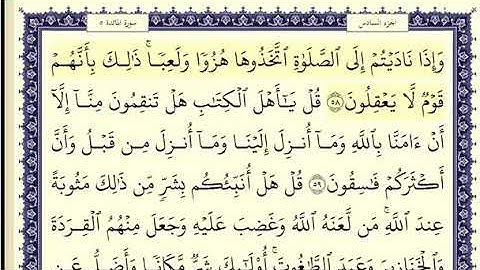 الجزء السادس
سورة المائدة ٥
وَإِذَا نَادَيْتُمْ إِلَى ٱلصَّلَوٰةِ ٱتَّخَذُوهَا هُزُوًا وَلَعِبًا ۚ ذَٰلِكَ بِأَنَّهُمْ
قَوْمٌ لَّا يَعْقِلُونَ ٥٨ قُلْ يَـٰٓأَهْلَ ٱلْكِتَـٰبِ هَلْ تَنقِمُونَ مِنَّآ إِلَّآ
أَنْ ءَامَنَّا بِٱللَّهِ وَمَآ أُنزِلَ إِلَيْنَا وَمَآ أُنزِلَ مِن قَبْلُ وَأَنَّ
أَكْثَرَكُمْ فَـٰسِقُونَ ٥٩ قُلْ هَلْ أُنَبِّئُكُم بِشَرٍّ مِّن ذَٰلِكَ مَثُوبَةً
عِندَ ٱللَّهِ ۚ مَن لَّعَنَهُ ٱللَّهُ وَغَضِبَ عَلَيْهِ وَجَعَلَ مِنْهُمُ ٱلْقِرَدَةَ
وَٱلْخَنَازِيرَ وَعَبَدَ ٱلطَّـٰغُوتَ ۚ أُو۟لَـٰٓئِكَ شَرٌّ مَّكَانًا وَأَضَلُّ عَن